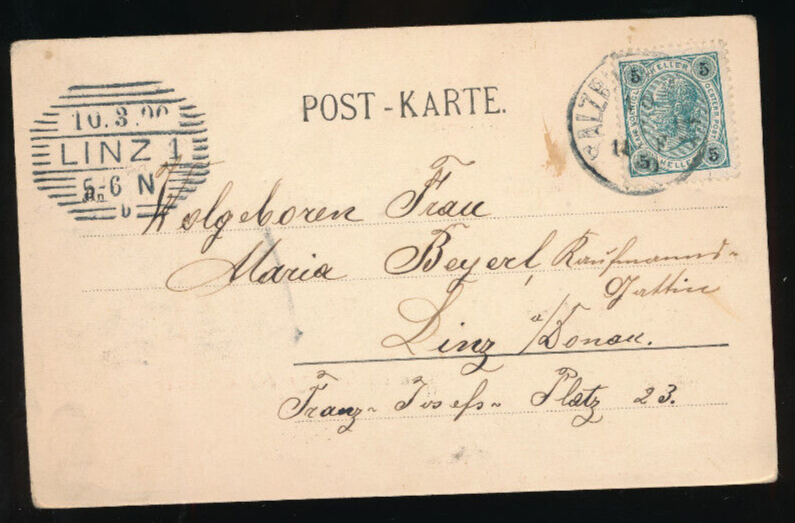 POST-KARTE.
10.3.00
LINZ 1
5-6 N
b
SALZB
5 HELLER 5
5 HELLER 5
Wolgeboren Frau
Maria Beyerl, Kaufmanns-
Gattin
Linz a/Donau.
Franz-Josefs-Platz 23.